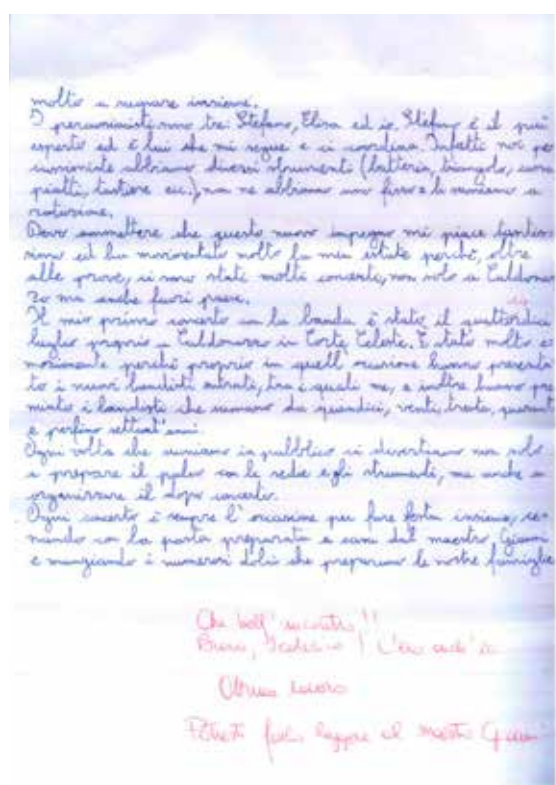 molto a suonare insieme.
I percussionisti sono tre: Stefano, Elisa ed io. Stefano è il più
esperto ed è lui che mi segue e ci coordina. Infatti noi per
cussionisti abbiamo diversi strumenti (batteria, triangolo,
piatti, tastiere ecc.), non ne abbiamo uno fisso e li suoniamo a
rotazione.
Devo ammettere che questo nuovo impegno mi piace tantis
simo ed ha movimentato molto la mia estate perché, oltre
alle prove, ci sono stati molti concerti, non solo a Caldona
zo ma anche fuori paese.
Il mio primo concerto con la banda è stato il quattordici
luglio proprio a Caldonazzo in Corte Celeste. È stato molto e
mozionante perché proprio in quell'occasione hanno presenta
to i nuovi bandisti entrati, tra i quali me, e inoltre hanno pre
miato i bandisti che suonano da quindici, venti, trenta, quarant
e perfino settant'anni.
Ogni volta che suoniamo in pubblico ci divertiamo non solo
a preparare il palco con le sedie e gli strumenti, ma anche a
organizzare il dopo concerto.
Ogni concerto è sempre l'occasione per fare festa insieme, ce
nando con la pasta preparata a casa dal maestro Gianni
e mangiando i numerosi dolci che preparano le nostre famiglie
Che bell'incontro!!
Bravo, Federico! C'ero anch'io
Ottimo lavoro
Potresti farlo leggere al maestro Gianni